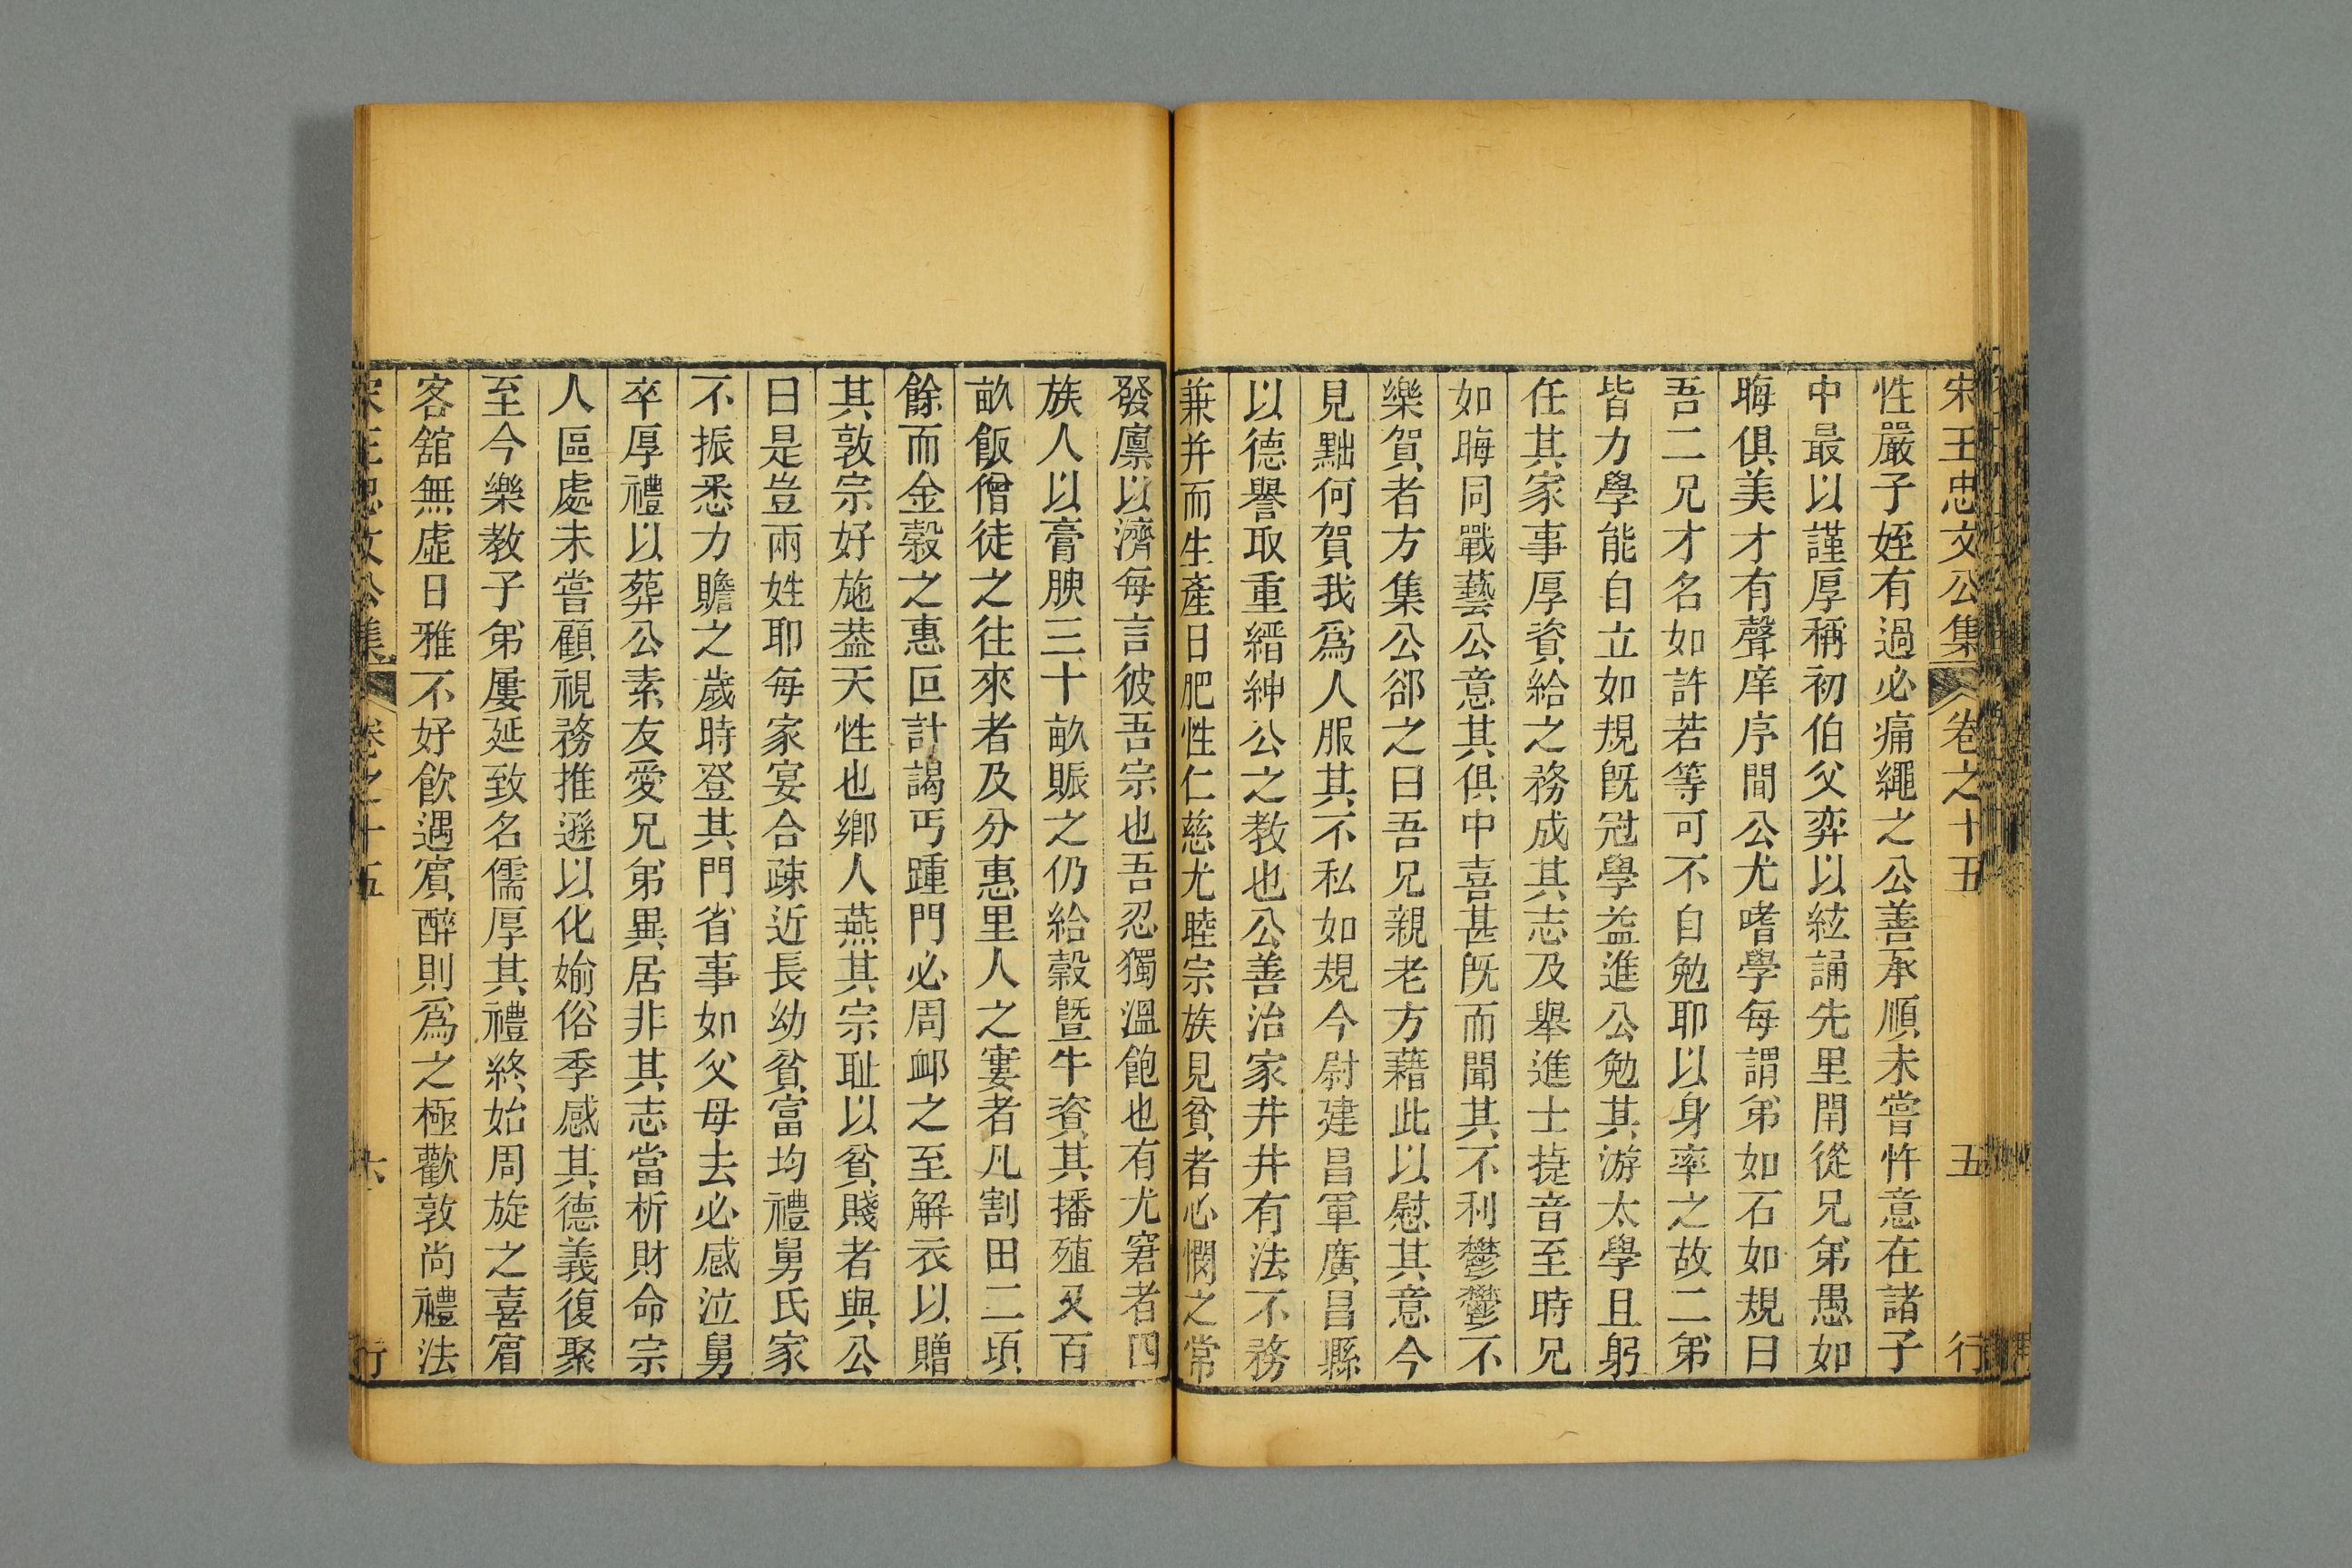 宋王忠文公集 卷之十五 五 行
性嚴子姪有過必痛繩之公善承順未嘗忤意在諸子
中最以謹厚稱初伯父弈以絃誦先里閈從兄弟愚如
晦俱美才有聲庠序間公尤嗜學每謂弟如石如規曰
吾二兄才名如許若等可不自勉耶以身率之故二弟
皆力學能自立如規旣冠學益進公勉其游太學且躬
任其家事厚資給之務成其志及舉進士㨗音至時兄
如晦同戰藝公意其俱中喜甚旣而聞其不利鬱鬱不
樂賀者方集公郤之曰吾兄親老方藉此以慰其意今
見黜何賀我爲人服其不私如規今尉建昌軍廣昌縣
以德譽取重縉紳公之教也公善治家井井有法不務
兼并而生產日肥性仁慈尤睦宗族見貧者必憫之常
發廪以濟每言彼吾宗也吾忍獨溫飽也有尤窘者四
族人以膏腴三十畝賑之仍給穀曁牛資其播殖又百
畝飯僧徒之往來者及分惠里人之寠者凡割田二頃
餘而金穀之惠叵計謁丐踵門必周䘏之至解衣以贈
其敦宗好施葢天性也鄉人燕其宗耻以貧賤者與公
曰是豈兩姓耶每家宴合疎近長幼貧富均禮舅氏家
不振悉力贍之歲時登其門省事如父母去必感泣舅
卒厚禮以葬公素友愛兄弟異居非其志當析財命宗
人區處未嘗顧視務推遜以化婾俗季感其德義復聚
至今樂教子弟屢延致名儒厚其禮終始周旋之喜賓
客舘無虛日雅不好飮遇賓醉則爲之極歡敦尚禮法
宋王忠文公集 卷之十五 六 行